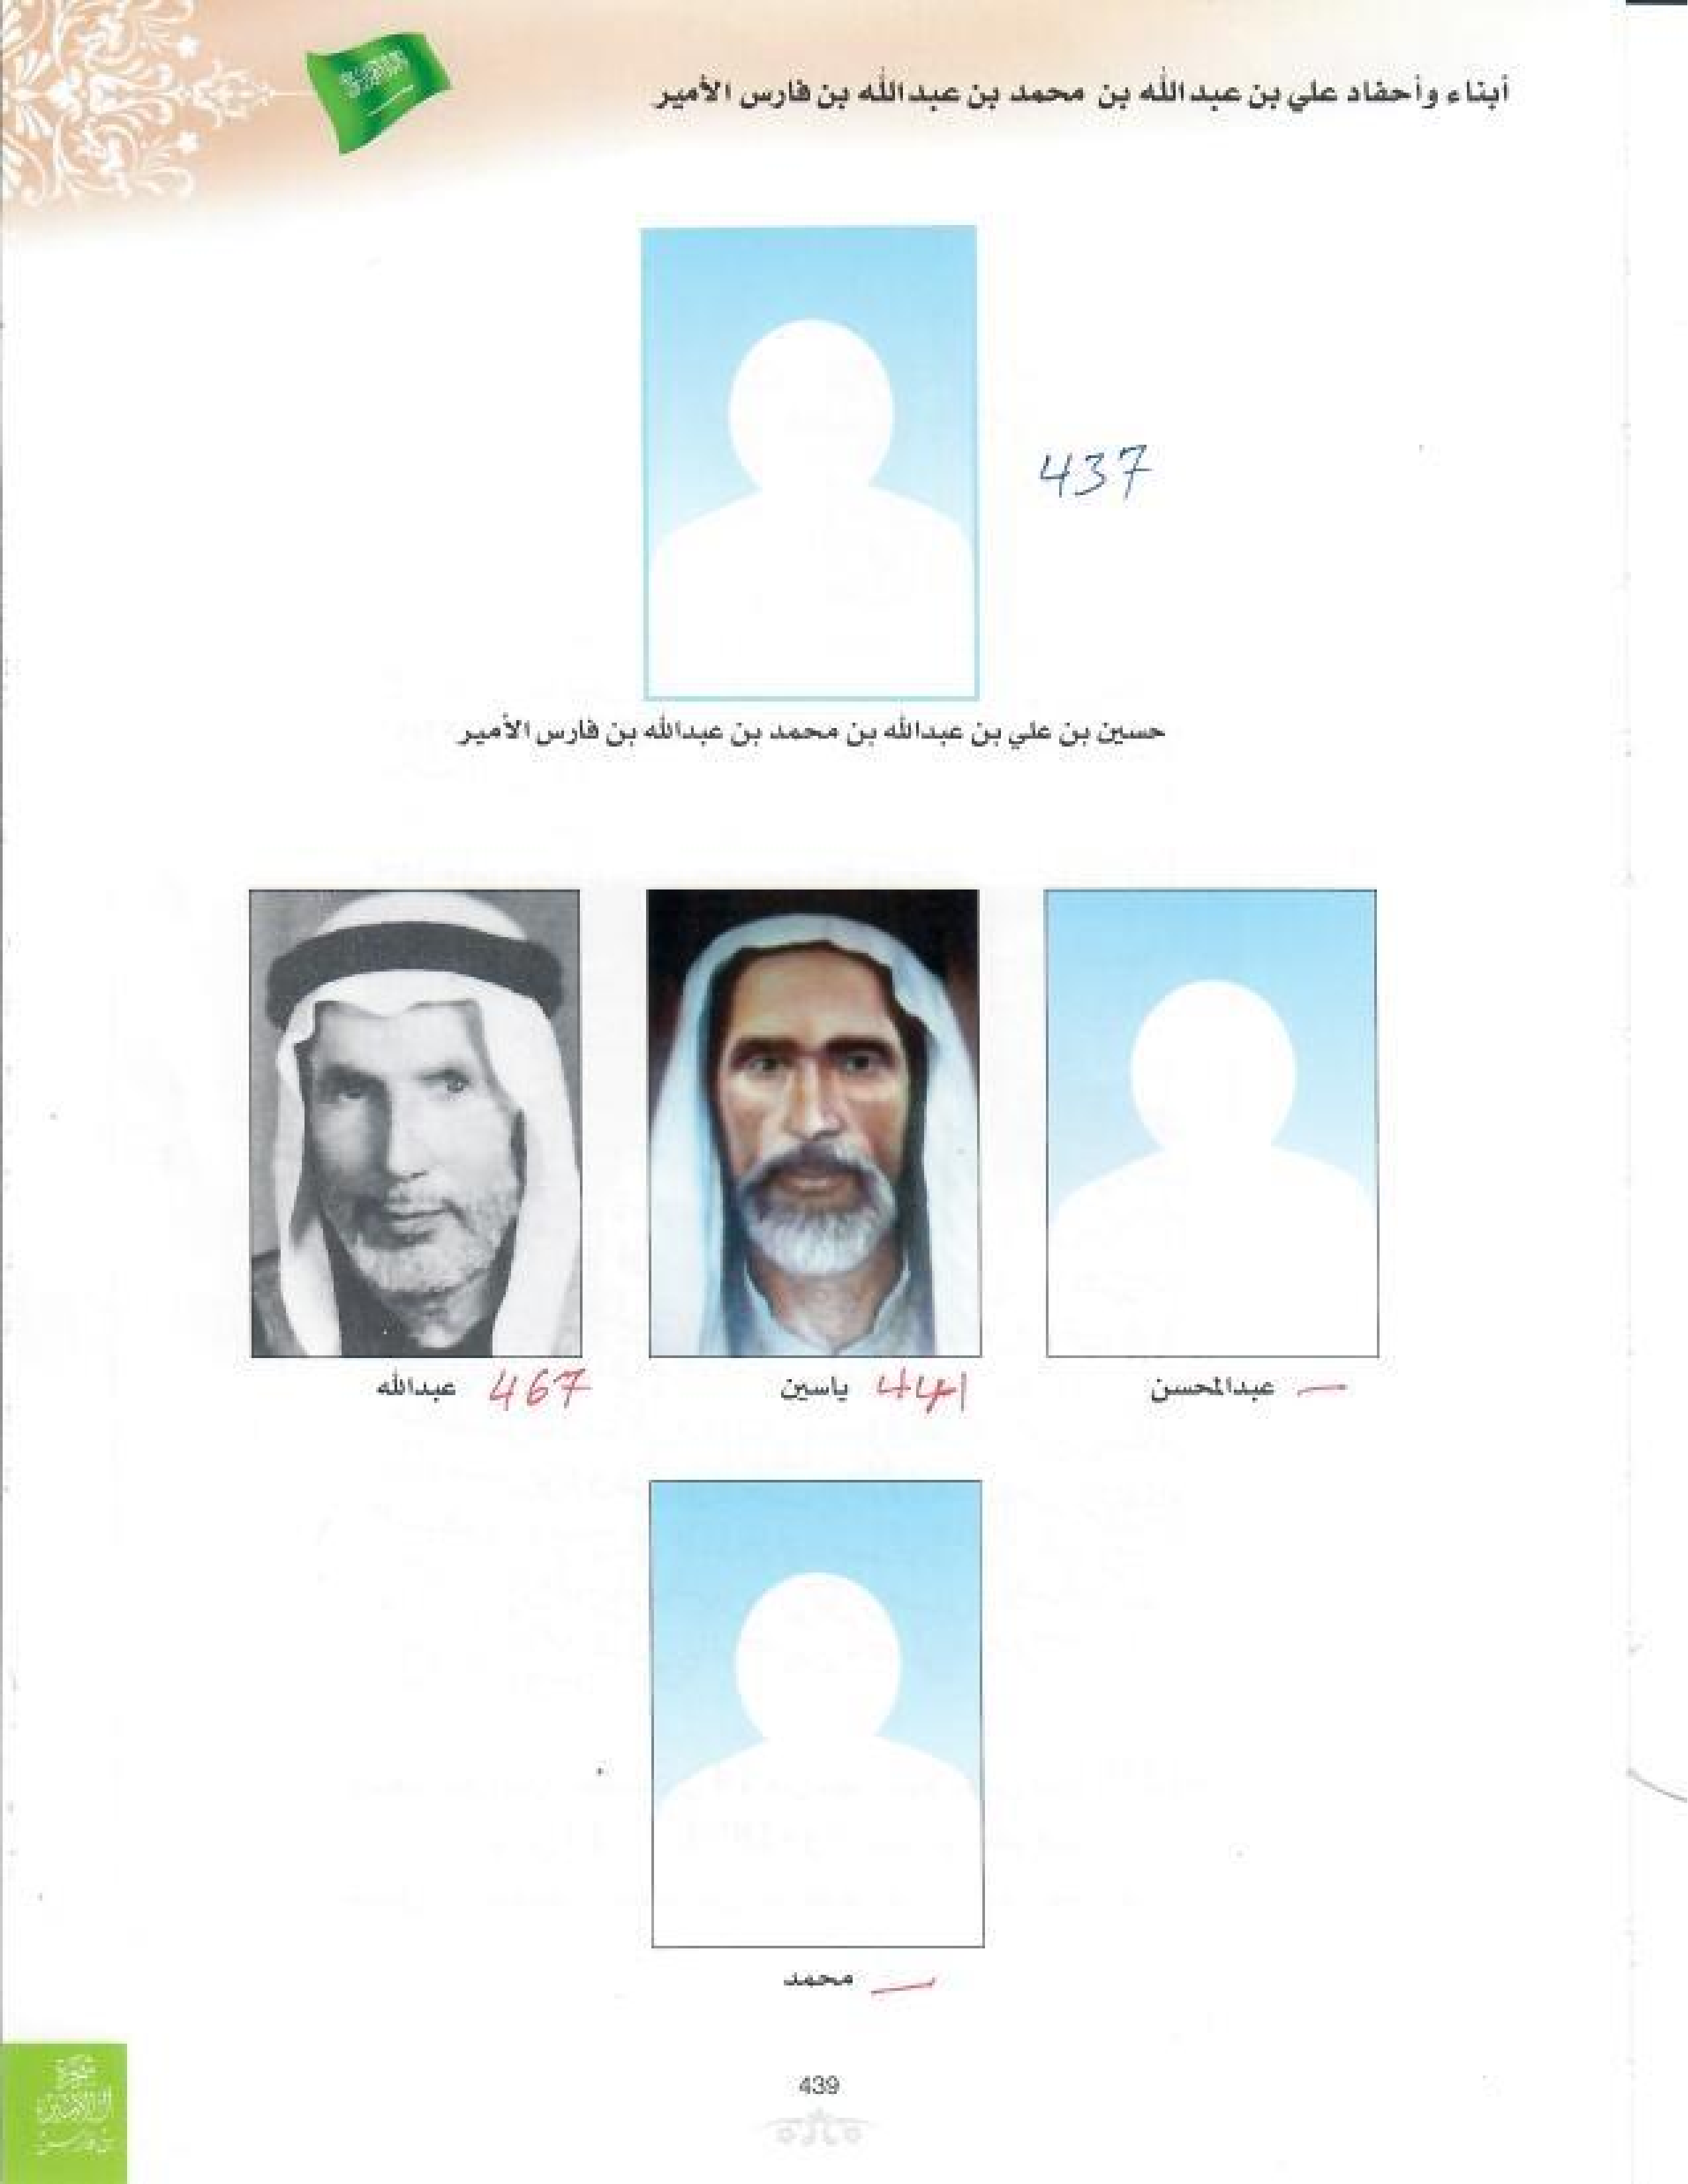 أبناء وأحفاد علي بن عبدالله بن محمد بن عبدالله بن فارس الأمير
437
حسين بن علي بن عبدالله بن محمد بن عبدالله بن فارس الأمير
عبدالمحسن —
ياسين 441
عبدالله 467
محمد —
439